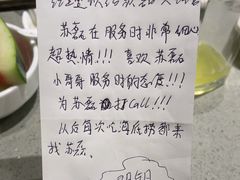 苏磊在服务时非常细心
超热情!!! 喜欢苏磊
小哥哥服务时的态度!!!
为苏磊打Call!!!
从后每次吃海底捞都来
找苏磊.